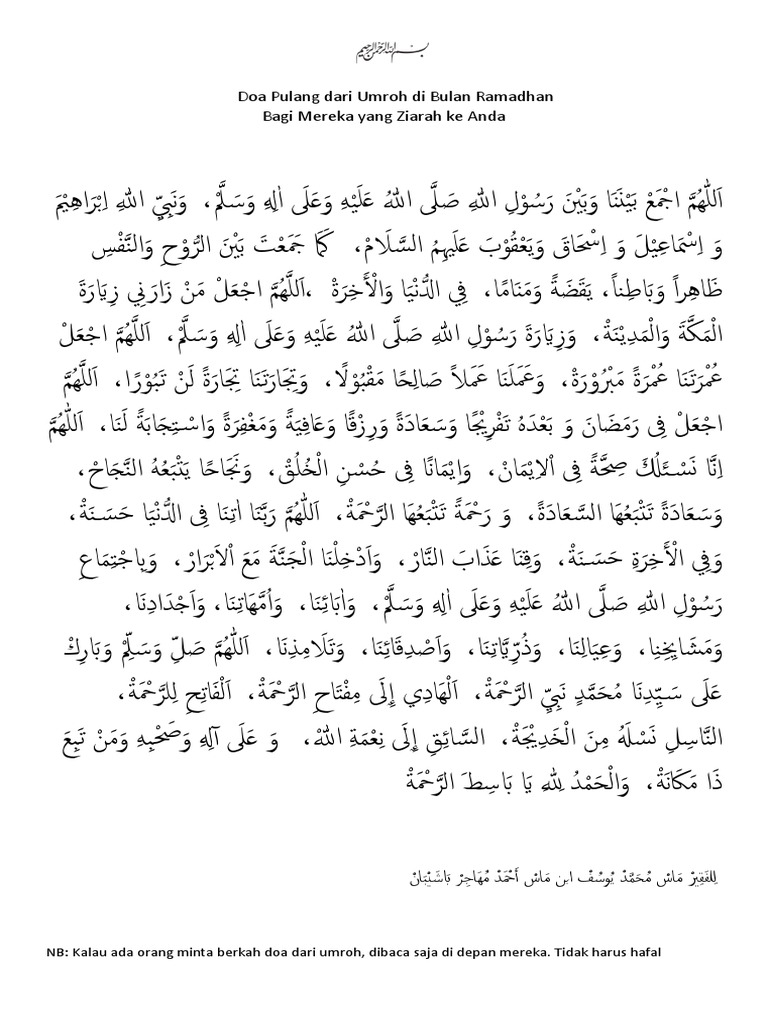 بسم الله الرحمن الرحيم
Doa Pulang dari Umroh di Bulan Ramadhan
Bagi Mereka yang Ziarah ke Anda
اَللّٰهُمَّ اجْمَعْ بَيْنَنَا وَبَيْنَ رَسُوْلِ اللهِ صَلَّى اللهُ عَلَيْهِ وَعَلَى اٰلِهِ وَسَلَّمْ، وَنَبِيِّ اللهِ اِبْرَاهِيْمَ
وَ اِسْمَاعِيْلَ وَ اِسْحَاقَ وَيَعْقُوْبَ عَلَيْهِمُ السَّلَامْ، كَمَا جَمَعْتَ بَيْنَ الرُّوْحِ وَالنَّفْسِ
ظَاهِراً وَبَاطِناً، يَقَضَةً وَمَنَامًا، فِي الدُّنْيَا وَالْأَخِرَةْ ،اَللَّهُمَّ اجْعَلْ مَنْ زَارَنِي زِيَارَةَ
الْمَكَّةَ وَالْمَدِيْنَةْ، وَزِيَارَةَ رَسُوْلِ اللهِ صَلَّى اللهُ عَلَيْهِ وَعَلَى اٰلِهِ وَسَلَّمْ، اَللَّهُمَّ اجْعَلْ
عُمْرَتَنَا عُمْرَةً مَبْرُوْرَةْ، وَعَمَلَنَا عَمَلاً صَالِحًا مَقْبُوْلًا، وَتِجَارَتَنَا تِجَارَةً لَنْ تَبُوْرًا، اَللَّهُمَّ
اجْعَلْ فِى رَمَضَانَ وَ بَعْدَهُ تَفْرِيْجًا وَسَعَادَةً وَرِزْقًا وَعَافِيَةً وَمَغْفِرَةً وَاسْتِجَابَةً لَنَا، اَللّٰهُمَّ
اِنَّا نَسْئَلُكَ صِحَّةً فِى اْلاِيْمَانْ، وَاِيْمَانًا فِى حُسْنِ الْخُلُقْ، وَنَجَاحًا يَتْبَعُهُ النَّجَاحْ،
وَسَعَادَةً تَتْبَعُهَا السَّعَادَةْ، وَ رَحْمَةً تَتْبَعُهَا الرَّحْمَةْ، اَللّٰهُمَّ رَبَّنَا اٰتِنَا فِى الدُّنْيَا حَسَنَةْ،
وَفِي الْأَخِرَةِ حَسَنَةْ، وَقِنَا عَذَابَ النَّارْ، وَاَدْخِلْنَا الْجَنَّةَ مَعَ اْلاَبْرَارْ، وَبِاجْتِمَاعِ
رَسُوْلِ اللهِ صَلَّى اللهُ عَلَيْهِ وَعَلَى اٰلِهِ وَسَلَّمْ، وَاٰبَائِنَا، وَاُمَّهَاتِنَا، وَاَجْدَادِنَا،
وَمَشَايِخِنِا، وَعِيَالِنَا، وَذُرِّيَّاتِنَا، وَاَصْدِقَائِنَا، وَتَلَامِذِنَا، اَللّٰهُمَّ صَلِّ وَسَلِّمْ وَبَارِكْ
عَلَى سَيِّدِنَا مُحَمَّدٍ نَبِيِّ الرَّحْمَةْ، اَلْهَادِي إِلَى مِفْتَاحِ الرَّحْمَةْ، اَلْفَاتِحِ لِلرَّحْمَةْ،
النَّاسِلِ نَسْلَهُ مِنَ الْخَدِيْجَةْ، السَّائِقِ إِلَى نِعْمَةِ اللهْ، وَ عَلَى آلِهِ وَصَحْبِهِ وَمَنْ تَبِعَ
ذَا مَكَانَةْ، وَالْحَمْدُ لِلهِ يَا بَاسِطَ الرَّحْمَةْ
لِلفَقِيْرْ مَاسْ مُحَمَّدْ يُوسُفْ ابن مَاسْ أَحْمَدْ مُهَاجِرْ بَاشَيْبَانْ
NB: Kalau ada orang minta berkah doa dari umroh, dibaca saja di depan mereka. Tidak harus hafal